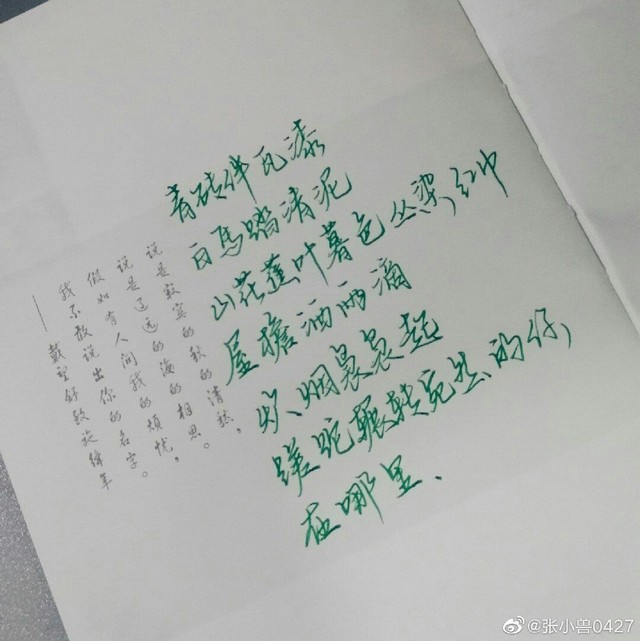 青砖伴瓦漆
白马踏清泥
山花蕉叶暮色丛染红巾
屋檐洒雨滴
炊烟袅袅起
蹉跎辗转宛然的你,
在哪里、
说是寂寞的秋的清愁,
说是辽远的海的相思。
假如有人问我的烦忧,
我不敢说出你的名字。
——戴望舒致施绛年
@张小兽0427